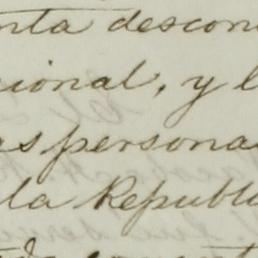 nta descon
cional, y l
as persona
la Republi